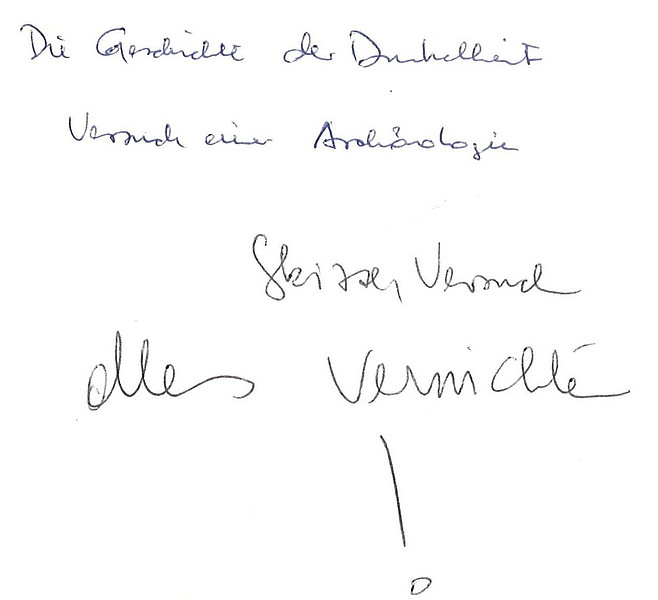 Die Geschichte der Dunkelheit
Versuch einer Archäologie
Skizze, Versuch
alles Vernichte
!